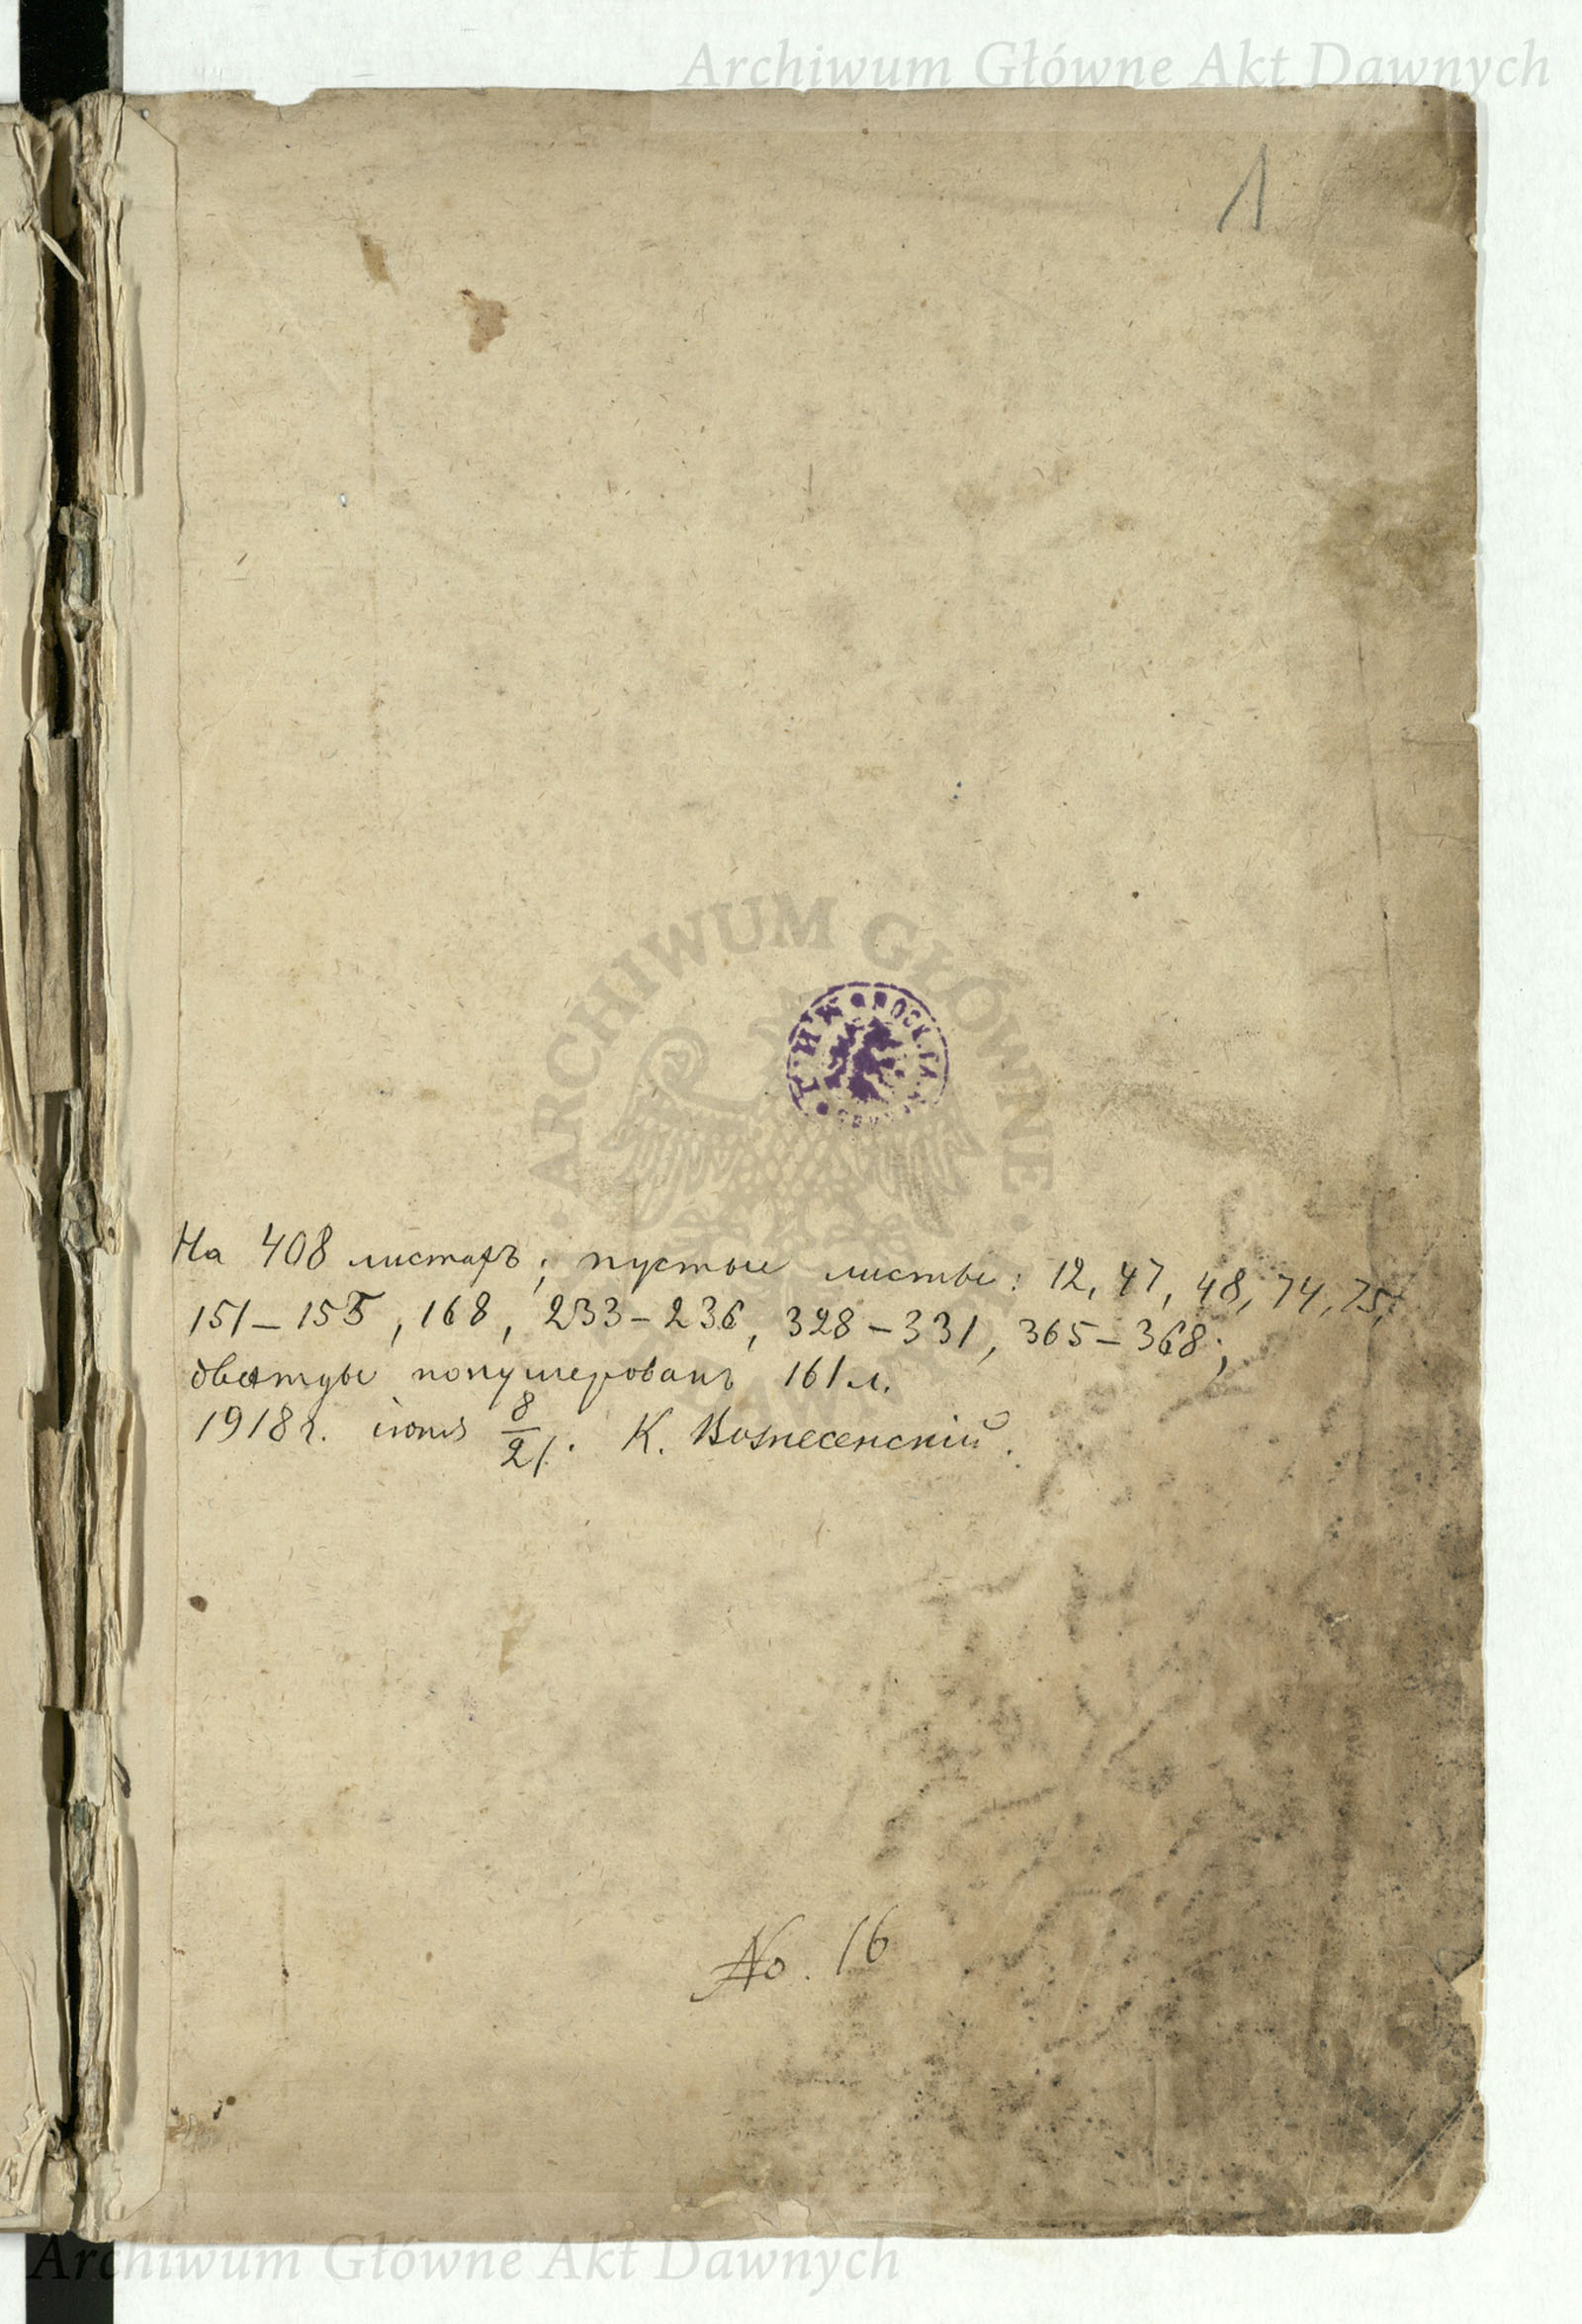 Archiwum Główne Akt Dawnych
1
ARCHIWUM GŁÓWNE
На 408 листахъ; пустые листы: 12, 47, 48, 74, 75,
151–155, 168, 233–236, 328–331, 365–368;
дважды нонумерованъ 161 л.
1918 г. іюня 8/21. К. Вознесенскій.
No. 16
Archiwum Główne Akt Dawnych